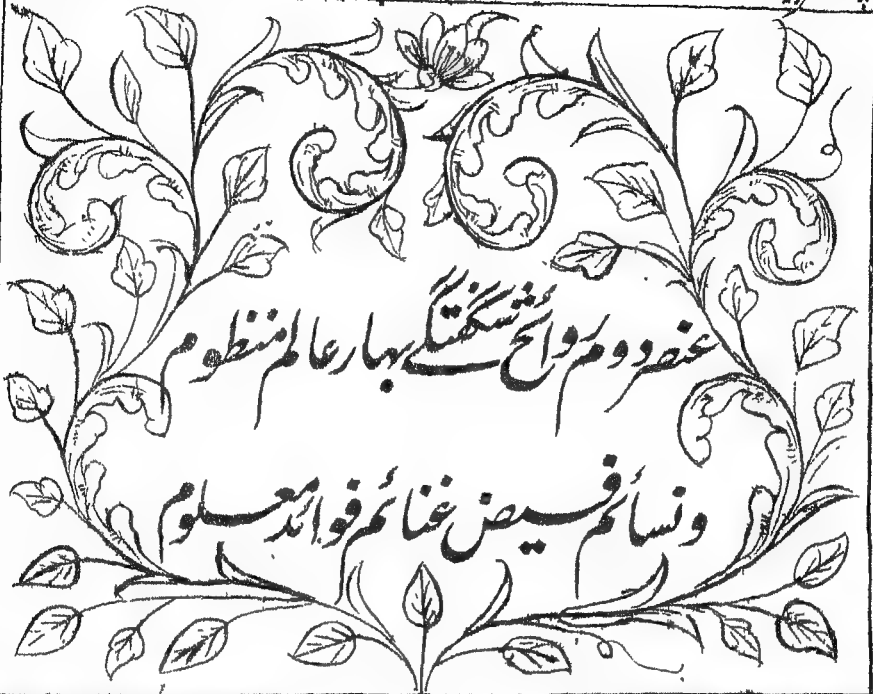 عنصر دوم روائح شگفتگی بهار عالم منظوم
و نسائم فیض غنائم فوائد معلوم